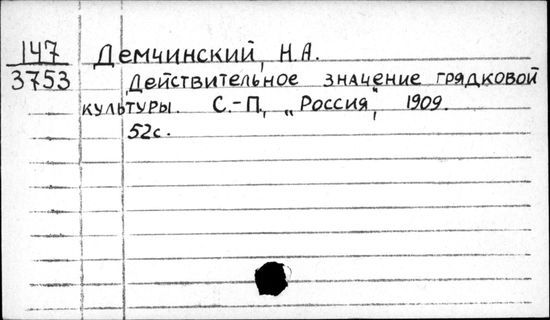 147 Демчинский, Н.А.
3753 Действительное значение грядковой
культуры. С.-П., „Россия", 1909.
52с.